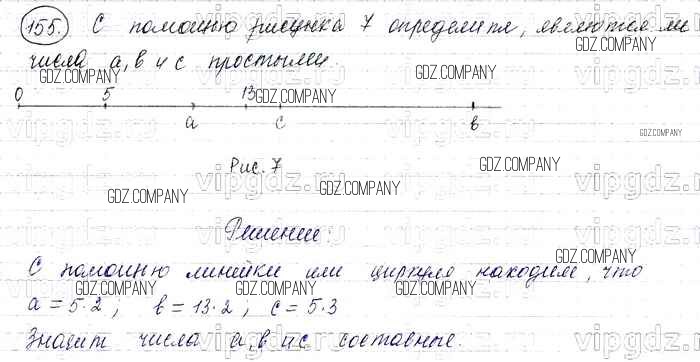 155. С помощью рисунка 7 определите, являются ли
числа a, b и c простыми.
GDZ.COMPANY
GDZ.COMPANY
GDZ.COMPANY
0 5 13
GDZ.COMPANY
a c b
GDZ.COMPANY
GDZ.COMPANY
Рис. 7
GDZ.COMPANY
vipgdz.ru
GDZ.COMPANY
GDZ.COMPANY
Решение:
GDZ.COMPANY
С помощью линейки или циркуля находим, что
a = 5·2; b = 13·2; c = 5·3
GDZ.COMPANY
GDZ.COMPANY
Значит числа a, b и c составные.
GDZ.COMPANY